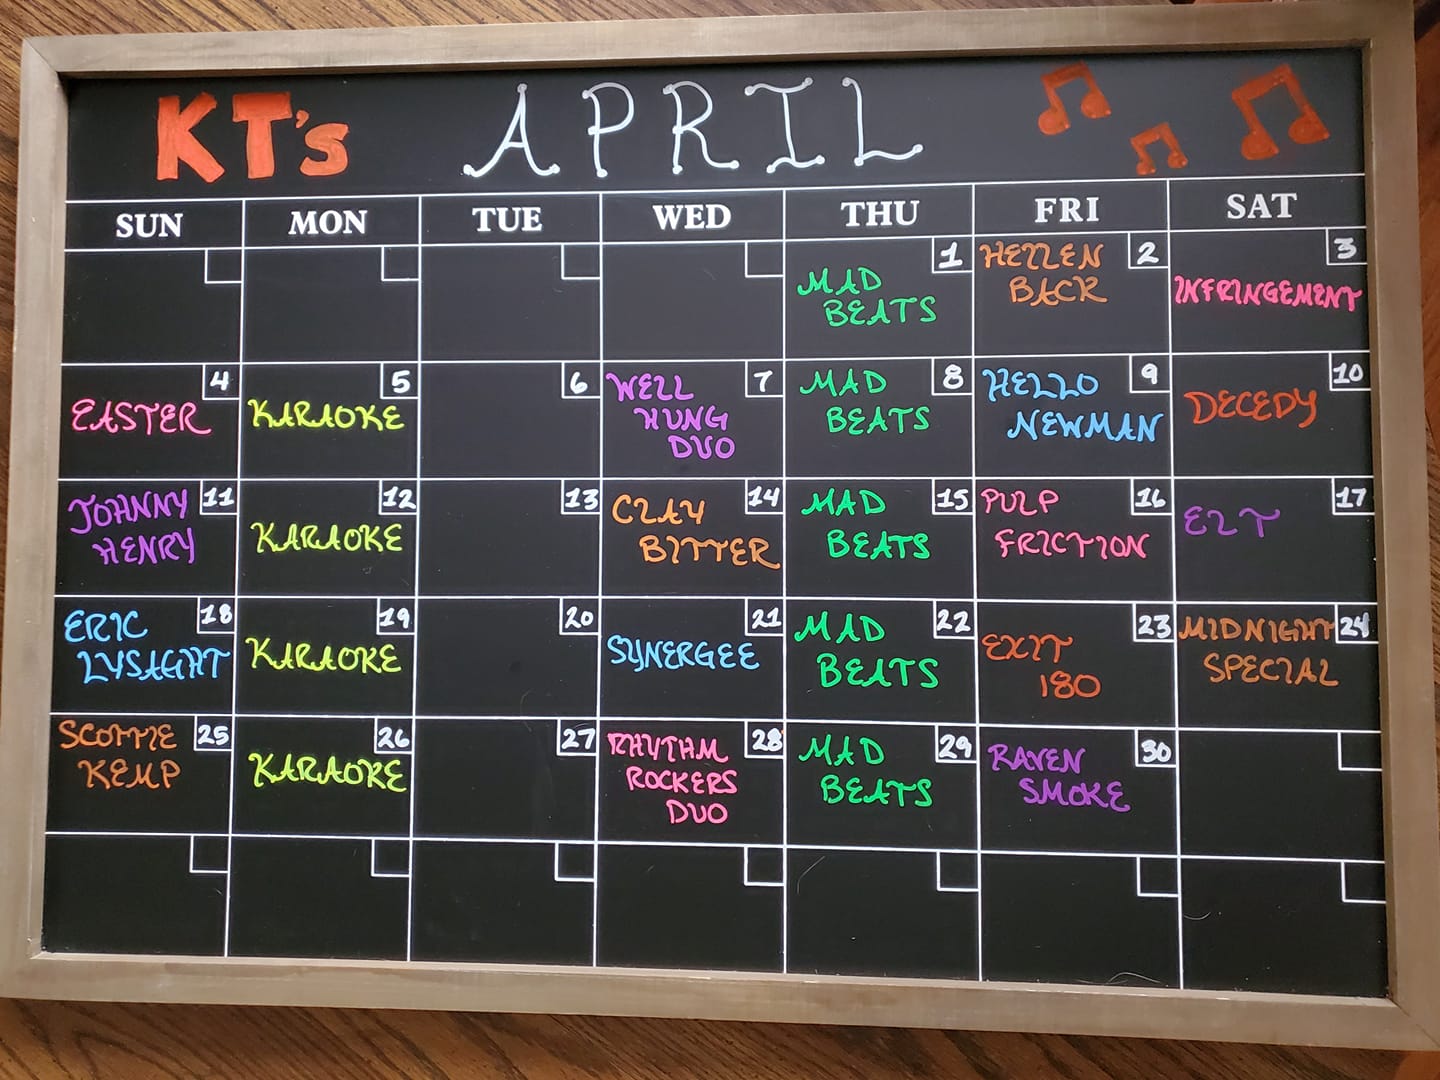 KT's APRIL
SUN MON TUE WED THU FRI SAT
1 2 3
MAD BEATS
HELLEN BACK
INFRINGEMENT
4 5 6 7 8 9 10
EASTER
KARAOKE
WELL HUNG DUO
MAD BEATS
HELLO NEWMAN
DECEDY
11 12 13 14 15 16 17
JOHNNY HENRY
KARAOKE
CLAY BITTER
MAD BEATS
PULP FRICTION
ELT
18 19 20 21 22 23 24
ERIC LYSAGHT
KARAOKE
SYNERGEE
MAD BEATS
EXIT 180
MIDNIGHT SPECIAL
25 26 27 28 29 30
SCOTTIE KEMP
KARAOKE
RHYTHM ROCKERS DUO
MAD BEATS
RAVEN SMOKE